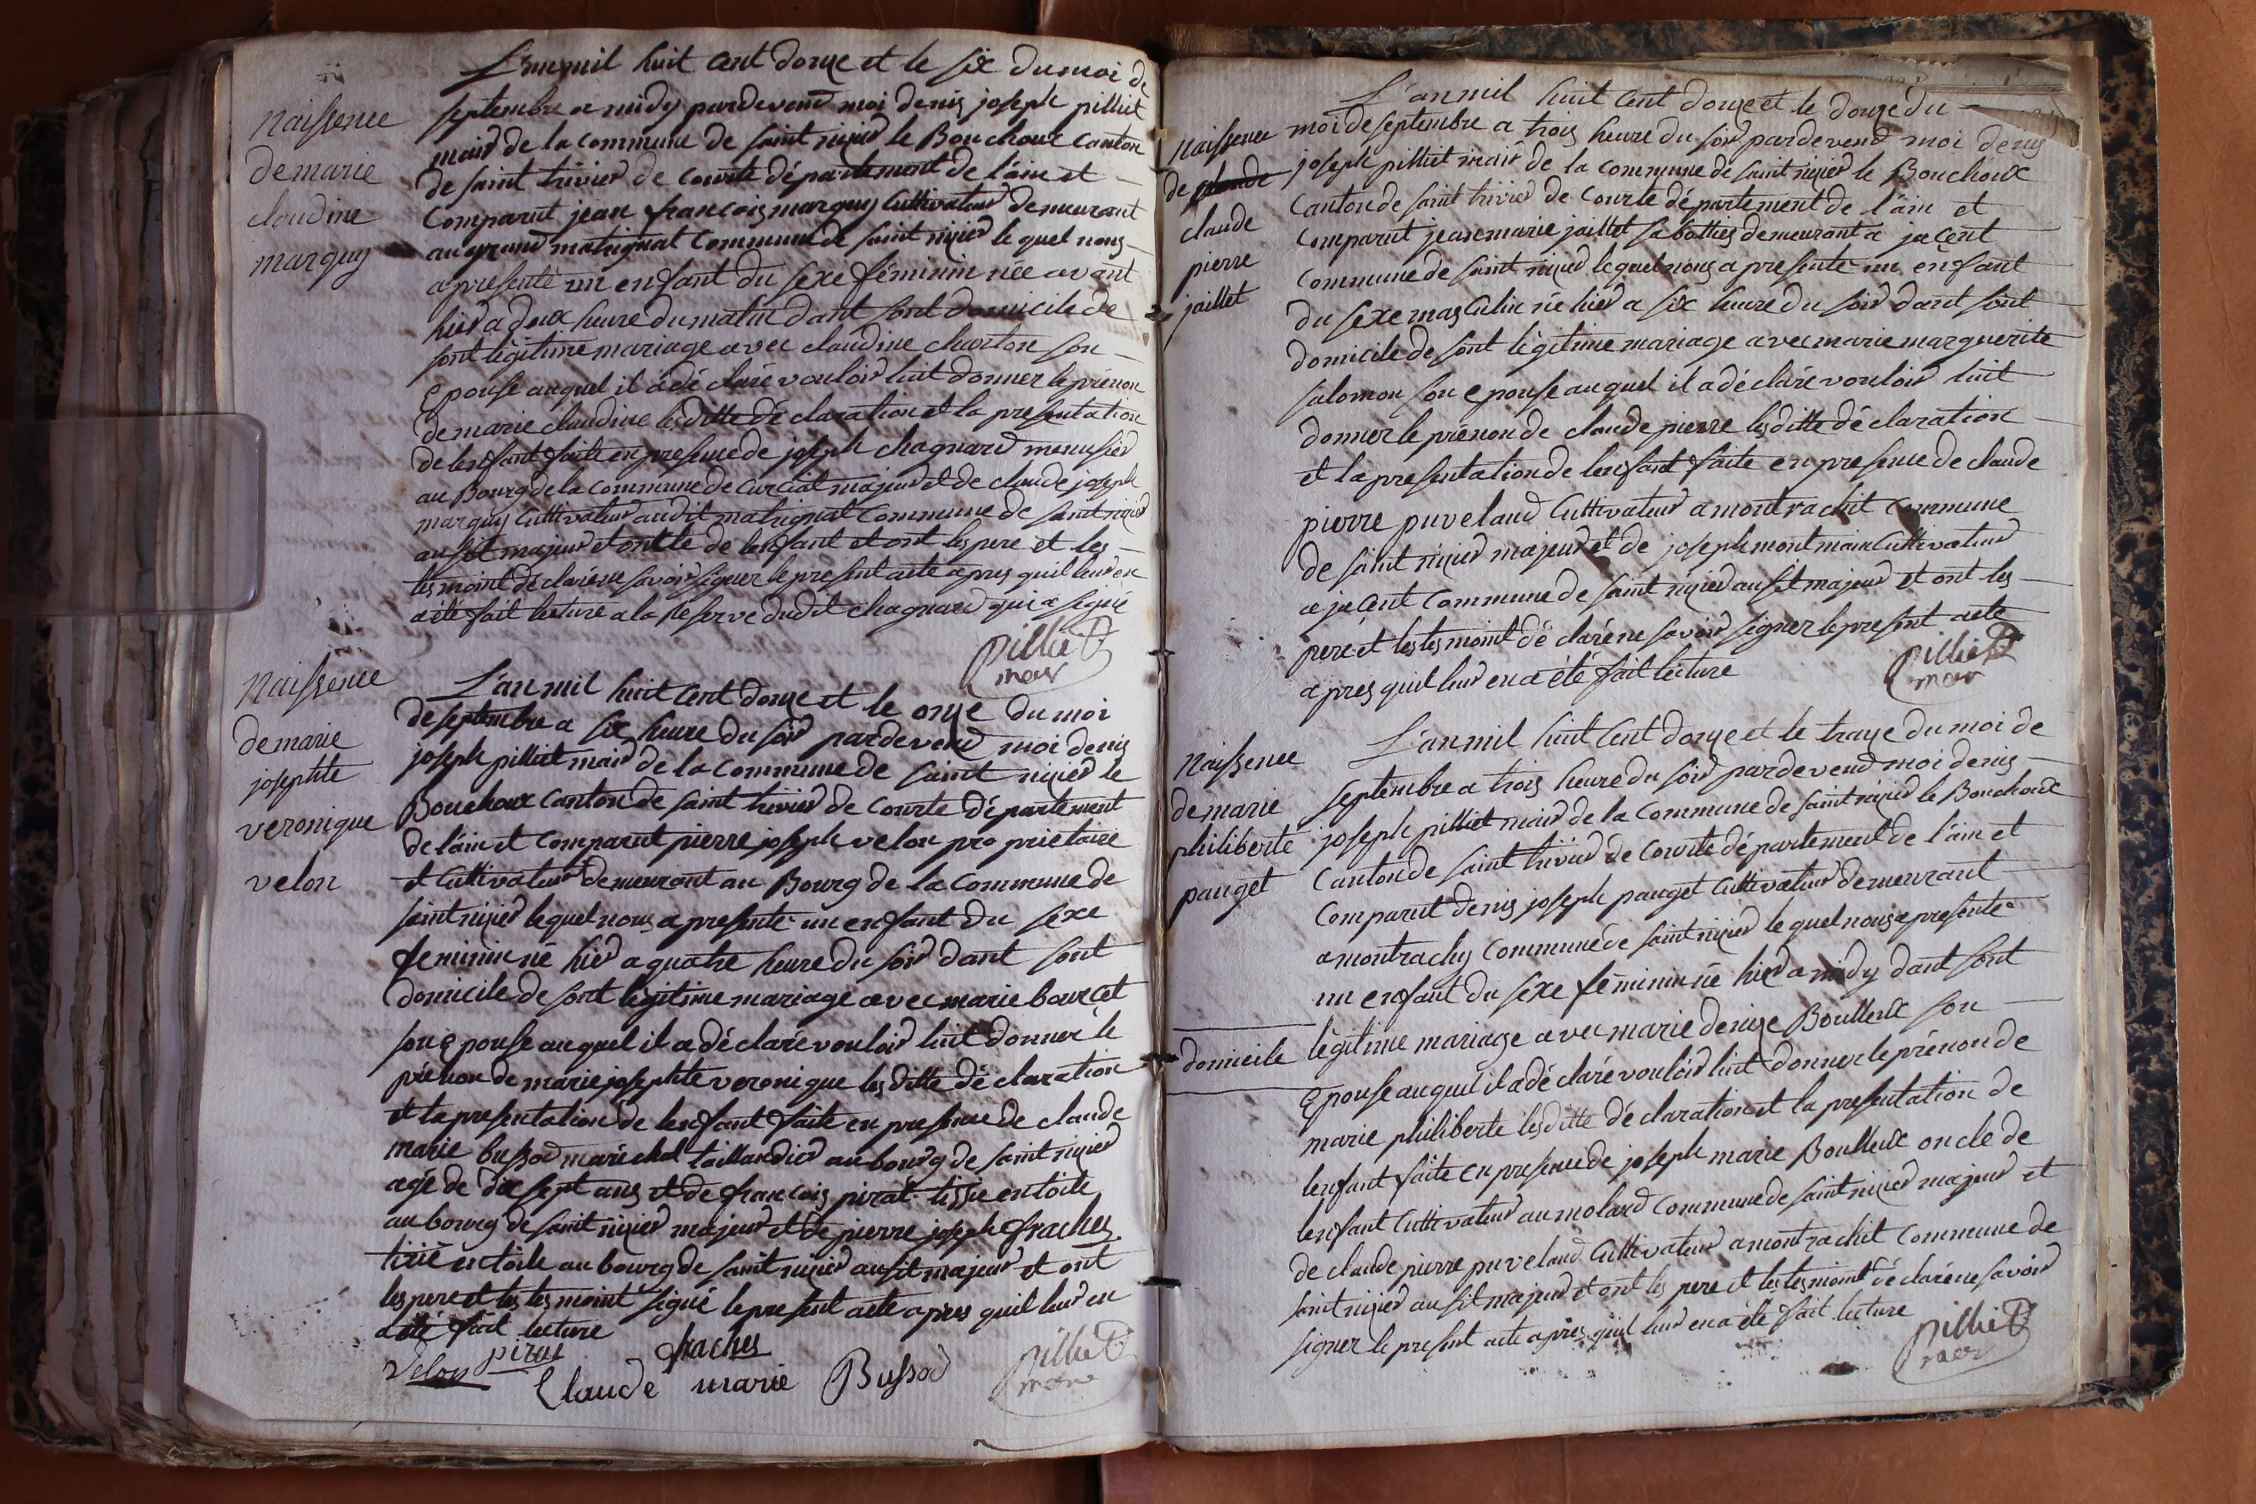 L'an mil huit cent douze et le six du moi de
septembre a midy pardevend moi denis joseph pilliet
mair de la commune de saint nizier le Bouchoux canton
de saint trivier de courte département de l'ain et
comparut jean francois marguy cultivateur demeurant
au grand matrignat commune de saint nizier le quel nous
a presenté un enfant du sexe féminin née avant
hier a deux heure du matin dant sont domicile de
sont légitime mariage avec claudine charton son
epouse auquel il a déclaré vouloir luit donner le prénon
de marie claudine les ditte déclaration et la presentation
de lenfant faite en presence de joseph chagnard menusier
au Bourg de la commune de curciat majeur et de claude joseph
marguy cultivateur audit matrignat commune de saint nizier
ausit majeur et oncle de lenfant et ont les pere et les
tesmoint déclaré ne savoir signer le present acte apres quil leur en
a été fait lecture a la Reserve dudit chagnard qui a signé
pilliet
mair
Naissence
de marie
claudine
marguy
L'an mil huit cent douze et le onze du moi
de septembre a six heure du soir pardevend moi denis
joseph pilliet mair de la commune de saint nizier le
Bouchoux canton de saint trivier de courte département
de l'ain et comparut pierre joseph velon pro prietaire
et cultivateur demeurant au Bourg de la commune de
saint nizier lequel nous a presenté un enfant du sexe
feminin né hier a quatre heure du soir dant sont
domicile de sont légitime mariage avec marie bourcet
son epouse auquel il a déclaré vouloir luit donner le
prénon de marie josephte veronique les ditte déclaration
et la presentation de lenfant faite en presence de claude
marie bussod maréchal taillandier au bourg de saint nizier
agé de dix sept ans et de francois pirat tissie en toile
au bourg de saint nizier majeur et de pierre joseph frachet
tisié en toile au bourg de saint nizier ausit majeur et ont
les pere et les tesmoint signé le present acte apres quil leur en
a été fait lecture
velon pirat frachet
Claude marie Bussod
pilliet
mair
Naissence
de marie
josephte
veronique
velon
L'an mil huit cent douze et le douze du
moi de septembre a trois heure du soir pardevend moi denis
joseph pilliet mair de la commune de saint nizier le Bouchoux
canton de saint trivier de courte département de l'ain et
comparut jean marie jaillet sabottier demeurant a jacent
commune de saint nizier lequel nous a presenté un enfant
du sexe masculin né hier a six heure du soir dant sont
domicile de sont légitime mariage avec marie marguerite
salomon son epouse auquel il a déclaré vouloir luit
donner le prénon de claude pierre les ditte déclaration
et la presentation de lenfant faite en presence de claude
pierre puveland cultivateur a montrachit commune
de saint nizier majeur et de joseph montmain cultivateur
a jacent commune de saint nizier ausit majeur et ont les
pere et les tesmoint déclaré ne savoir signer le present acte
apres quil leur en a été fait lecture
pilliet
mair
Naissence
de claude
claude
pierre
jaillet
L'an mil huit cent douze et le traze du moi de
septembre a trois heure du soir pardevend moi denis
joseph pilliet mair de la commune de saint nizier le Bouchoux
canton de saint trivier de courte département de l'ain et
comparut denis joseph pauget cultivateur demeurant
a montrachy commune de saint nizier le quel nous a presenté
un enfant du sexe féminin né hier a midy dant sont
légitime mariage avec marie denize Boulleux son
epouse auquel il a déclaré vouloir luit donner le prénon de
marie philiberte les ditte déclaration et la presentation de
lenfant faite en presence de joseph marie Boulleux oncle de
lenfant cultivateur au molard commune de saint nizier majeur et
de claude pierre puveland cultivateur a montrachit commune de
saint nizier ausit majeur et ont les pere et les tesmoint déclaré ne savoir
signer le present acte apres quil leur en a été fait lecture
pilliet
mair
Naissence
de marie
philiberte
pauget
domicile